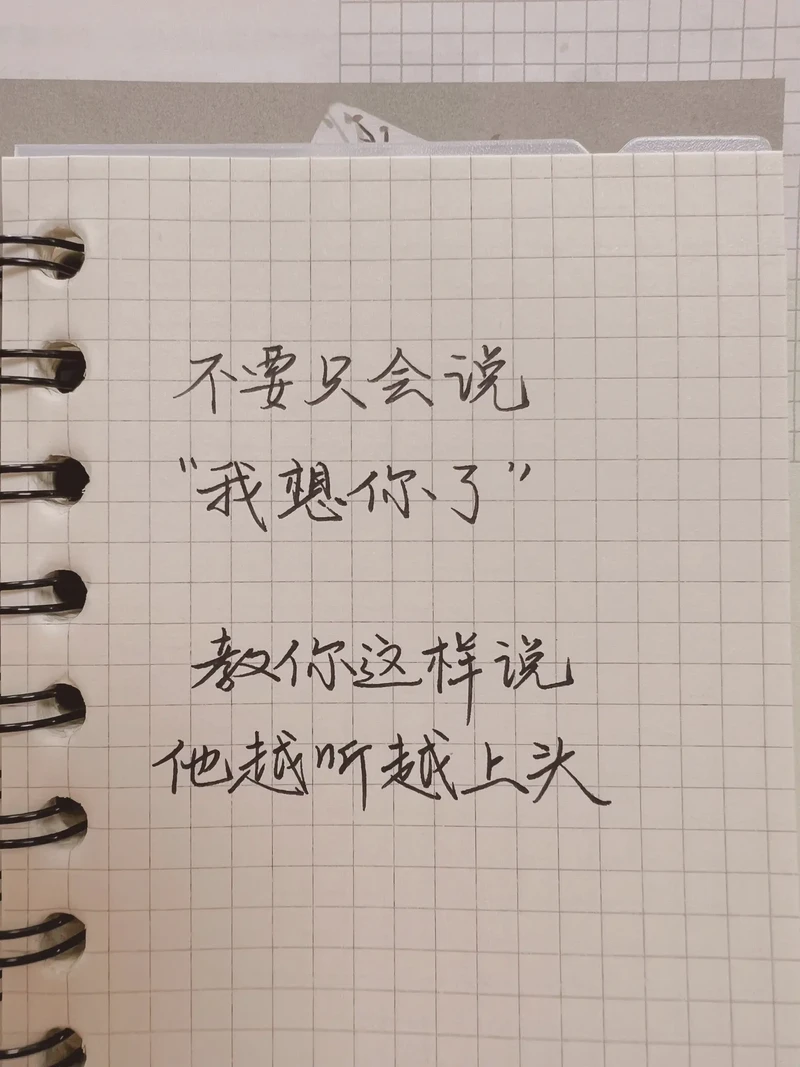 不要只会说
“我想你了”
教你这样说
他越听越上头